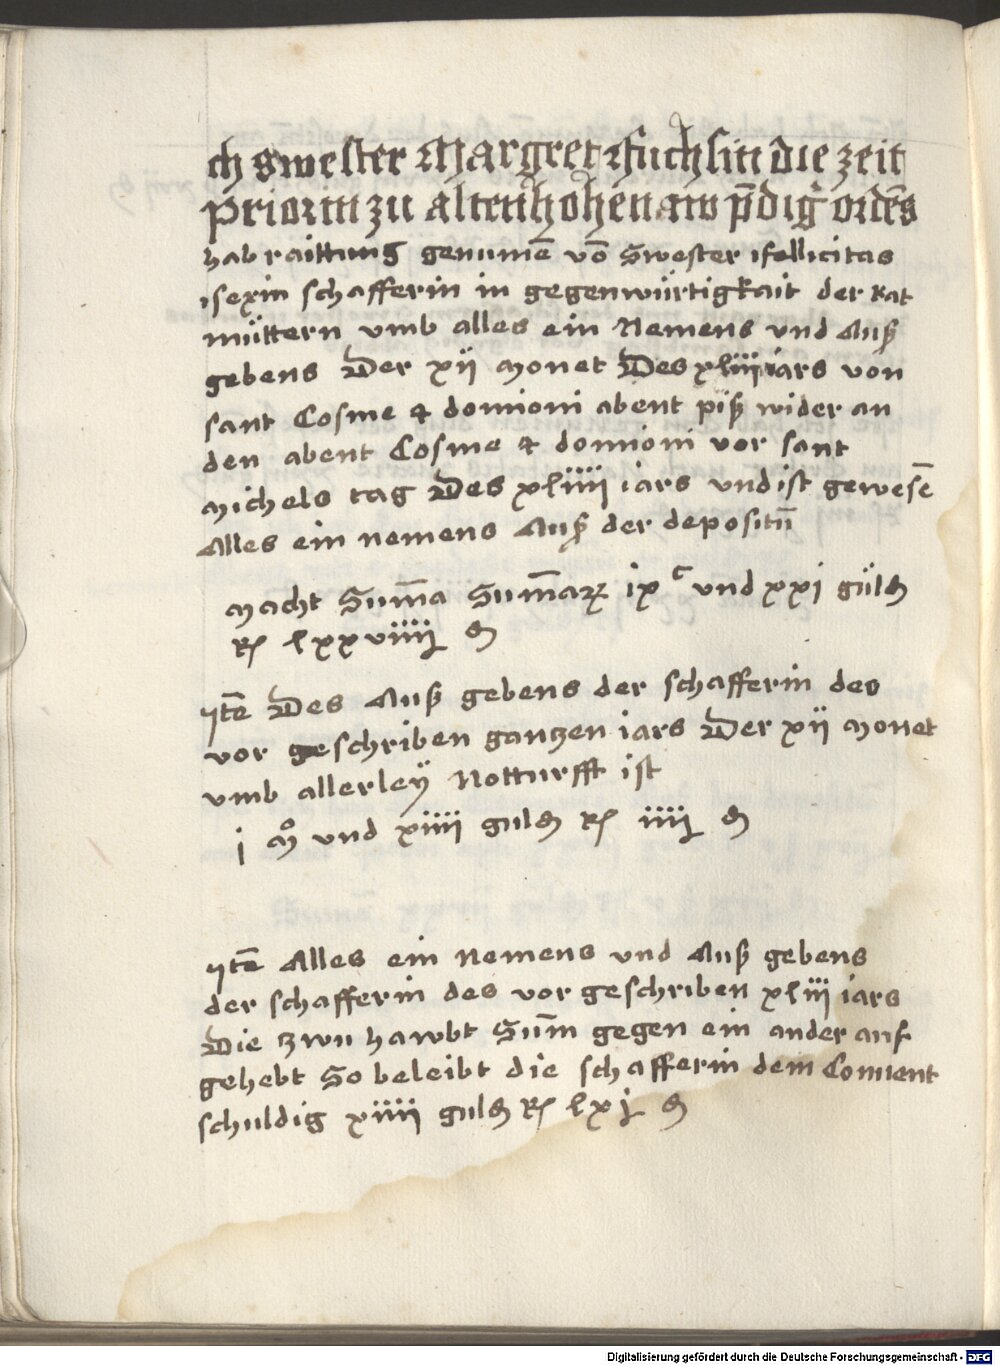 ch swester Margret Fuchsin die zeit
Priorin zu altenhohenaw p̄dig' ordēs
hab raittung genumē vō Swester ffellicitas
schafferin in gegenwürtigkait der Rat
müttern vmb alles ein Nemens vnd Auß
gebens Der xij Monet Des xliij iars von
sant Cosme & domioni abent piß wider an
den abent Cosme & domioni vor sant
Michels tag Des xliiij iars vnd ist gewesē
Alles ein nemens Auß der depositū
Macht Sum̄a Sum̄aꝝ ixᶜ vnd xxj guldñ
Rĩ lxxviiij ₰
Itē Des Auß gebens der schafferin des
vor geschriben gantzen iars Der xij Monet
vmb allerley Notturfft ist
j Mᵒ vnd xiiij guldñ Rĩ iiij ₰
Itē Alles ein Nemens vnd Auß gebens
der schafferin des vor geschriben xliij iars
Die zwu hawbt Sum̄ gegen ein ander auf
gehebt So beleibt die schafferin dem Conuent
schuldig xiiij guldñ Rĩ lxj ₰
Digitalisierung gefördert durch die Deutsche Forschungsgemeinschaft - DFG